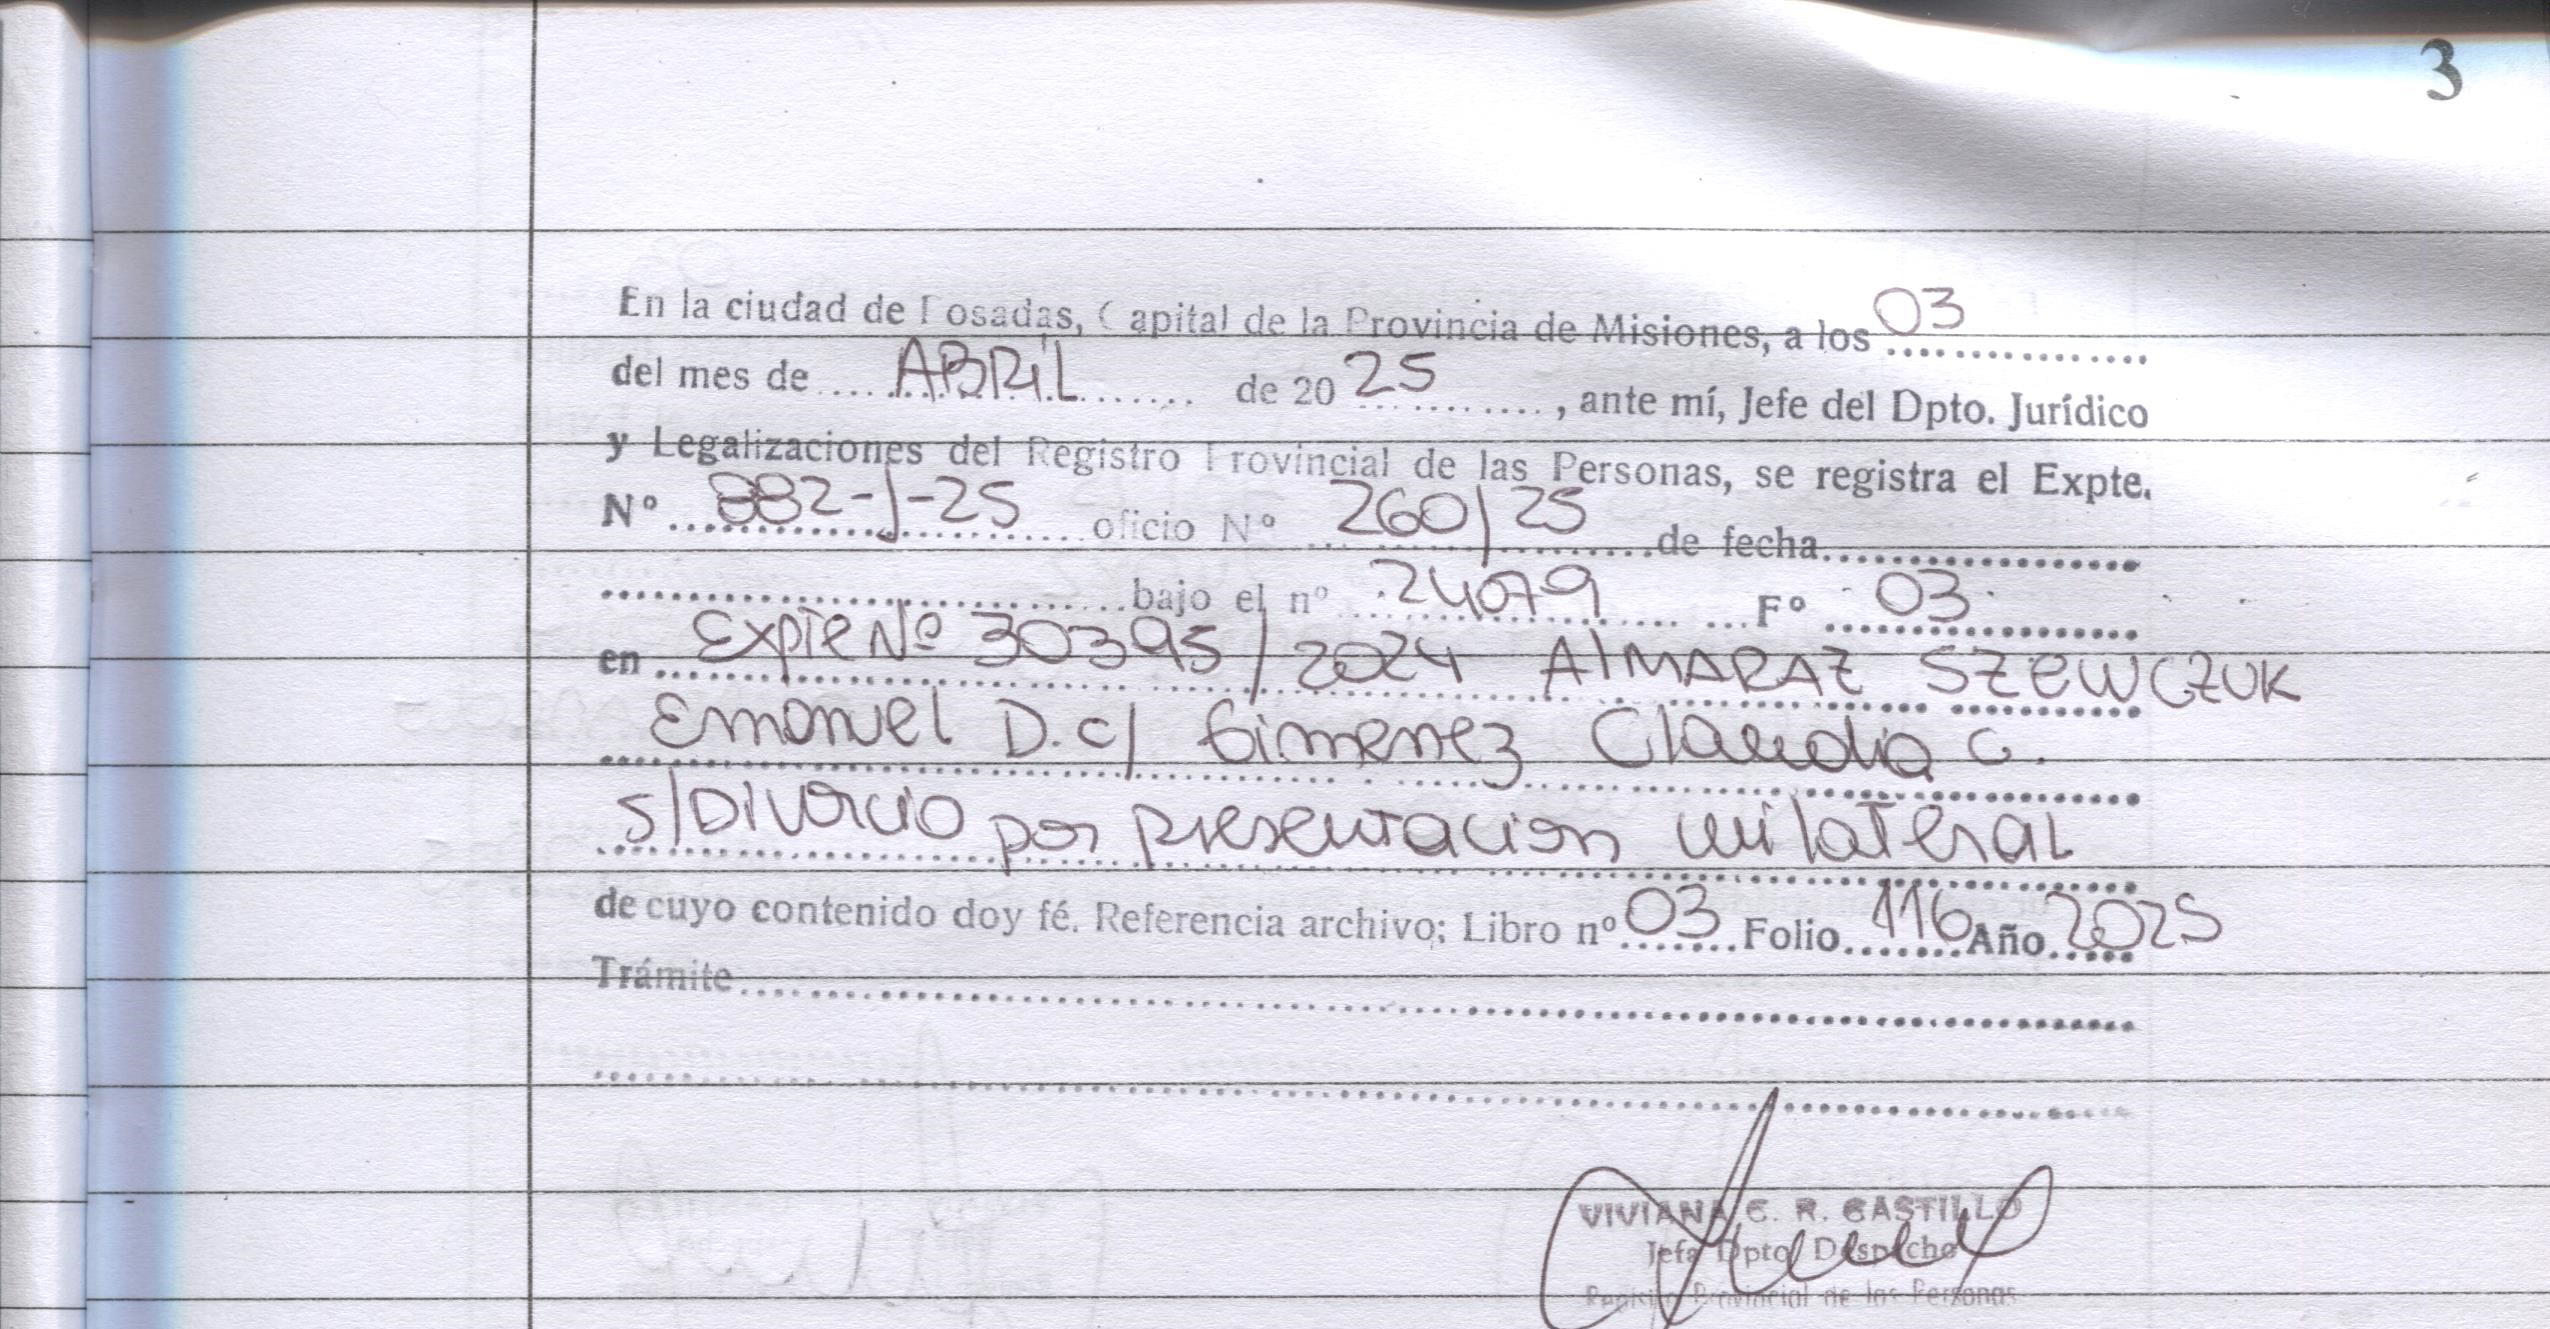 3
En la ciudad de Posadas, Capital de la Provincia de Misiones, a los 03
del mes de ABRIL de 20 25, ante mí, Jefe del Dpto. Jurídico
y Legalizaciones del Registro Provincial de las Personas, se registra el Expte.
Nº 882-J-25 oficio Nº 260/25 de fecha
bajo el nº 24079 Fº 03
en Expte Nº 30395/2024 AlMARAZ SZEWCZUK
Emanuel D. c/ Gimenez Claudia C.
s/Divorcio por presentacion unilateral
de cuyo contenido doy fé. Referencia archivo; Libro nº 03 Folio 116 Año 2025
Trámite
VIVIANA C. R. CASTILLO
Jefa Dpto Despacho
Registro Provincial de las Personas